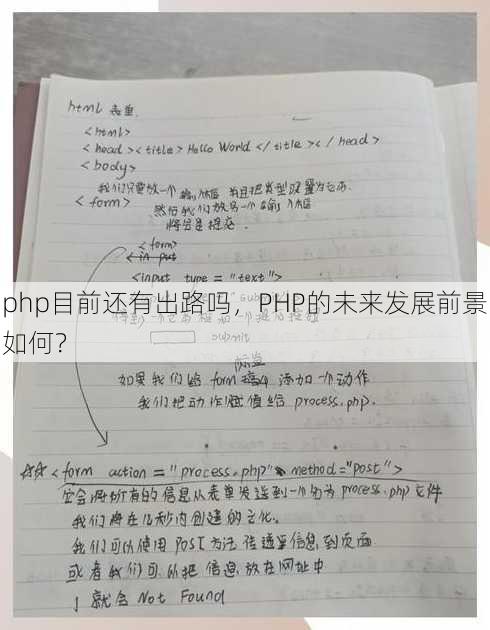 html 表单.
<html>
<head><title>Hello World</title></head>
<body>
我们只要放一个输入框 并且把类型设置为它而.
<form> 然后我们放另一个输入框
将会是提交.
<form>
<input
<input type = "text">
php目前还有出路吗，PHP的未来发展前景
如何？
标签
如果我们给 form 添加一个动作
我们把动作赋值给 process.php.
<form action = "process.php" method="post">
它会将所有的信息从表单发送到一个名为 process.php 文件
我们将在几秒内创建的文化.
我们可以使用 POST 方法 传递信息到页面
或者我们可以把信息放在网址中
就会 Not Found